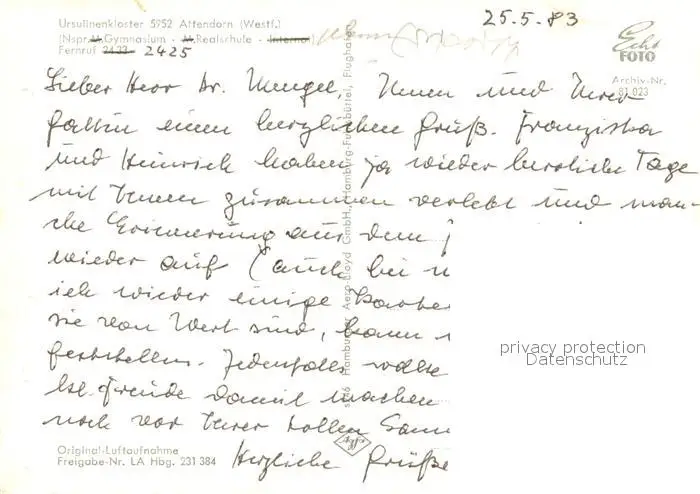 Ursulinenkloster 5952 Attendorn (Westf.)
25.5.83
(Nspr. M. Gymnasium - M. Realschule - Internat)
Fernruf 2433 2425
Echt
FOTO
Archiv-Nr.
81 023
Lieber Herr Dr. Mengel, Ihnen und Ihrer
Gattin einen herzlichen Gruß. Franziska
und Heinrich haben ja wieder herrliche Tage
mit Ihnen zusammen verlebt und man-
che Erinnerung aus dem
wieder auf (auch bei
ich wieder einige Karte
sie von Wert sind, kann
feststellen. Jedenfalls wollte
Freude damit machen
noch vor Ihrer tollen Sam
Herzliche Grüße
privacy protection
Datenschutz
Original-Luftaufnahme
Freigabe-Nr. LA Hbg. 231 384
Hamburger Aero-Lloyd GmbH., Hamburg-Fuhlsbüttel, Flughafen
Agfa